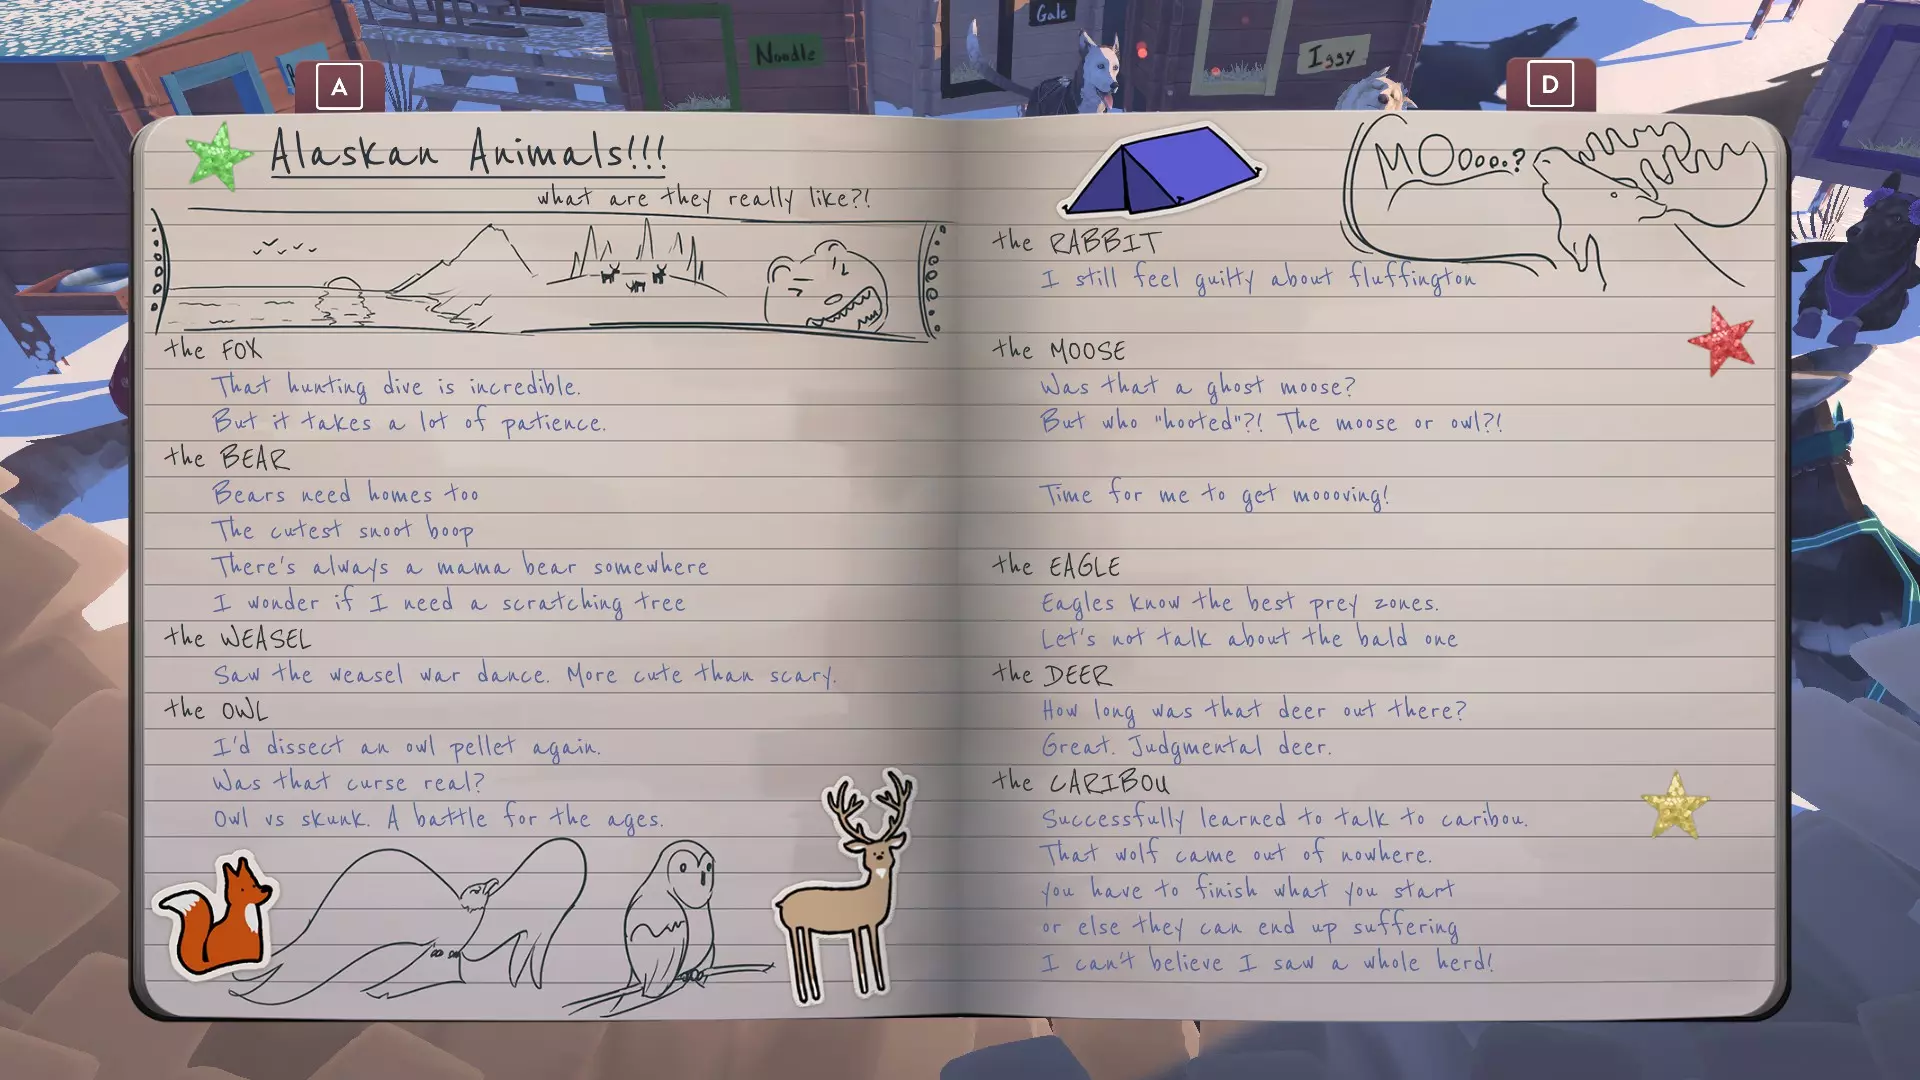 Noodle
Gale
Iggy
A
D
Alaskan Animals!!!
what are they really like?!
the FOX
That hunting dive is incredible.
But it takes a lot of patience.
the BEAR
Bears need homes too
The cutest snoot boop
There's always a mama bear somewhere
I wonder if I need a scratching tree
the WEASEL
Saw the weasel war dance. More cute than scary.
the OWL
I'd dissect an owl pellet again.
Was that curse real?
Owl vs skunk. A battle for the ages.
MOOooo..?
the RABBIT
I still feel guilty about fluffington
the MOOSE
Was that a ghost moose?
But who "hooted"?! The moose or owl?!
Time for me to get moooving!
the EAGLE
Eagles know the best prey zones.
Let's not talk about the bald one
the DEER
How long was that deer out there?
Great. Judgmental deer.
the CARIBOU
Successfully learned to talk to caribou.
That wolf came out of nowhere.
you have to finish what you start
or else they can end up suffering
I can't believe I saw a whole herd!